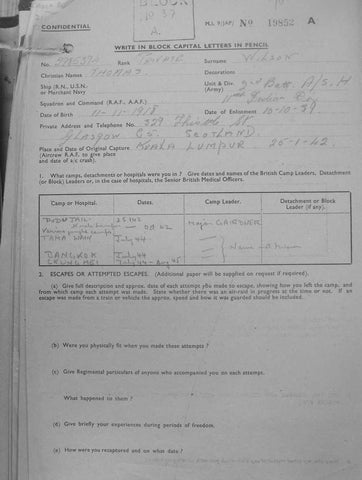 BLOCK
No 37
A.
CONFIDENTIAL
M.I. 9/JAP/ No 19852 A
WRITE IN BLOCK CAPITAL LETTERS IN PENCIL
No. Rank PRIVATE Surname WILSON
Christian Names THOMAS Decorations
Ship (R.N., U.S.N. or Merchant Navy) Unit (Army) Div. 2nd Batt. A/S/H
Squadron and Command (R.A.F., A.A.F.) 11th Indian Div
Date of Birth 11-11-1918 Date of Enlistment 16-10-39
Private Address and Telephone No. 329 St.
GLASGOW C5. SCOTLAND.
Place and Date of Original Capture KUALA LUMPUR 25-1-42.
(Aircrew R.A.F. to give place
and date of a/c crash).
1. What camps, detachments or hospitals were you in? Give dates and names of the British Camp Leaders, Detachment
(or Block) Leaders or, in the case of hospitals, the Senior British Medical Officers.
Camp or Hospital. Dates. Camp Leader. Detachment or Block Leader (if any).
PUDU JAIL Major GAIRDNER
Various jungle camps Oct 42
July 44
BANGKOK July 44
July 44 - Aug 45
2. ESCAPES OR ATTEMPTED ESCAPES. (Additional paper will be supplied on request if required).
(a) Give full description and approx. date of each attempt you made to escape, showing how you left the camp, and
from which camp each attempt was made. State whether there was an air-raid in progress at the time or not. If an
escape was made from a train or vehicle the approx. speed and how it was guarded should be included.
(b) Were you physically fit when you made these attempts?
(c) Give Regimental particulars of anyone who accompanied you on each attempt.
What happened to them?
(d) Give briefly your experiences during periods of freedom.
(e) How were you recaptured and on what date?